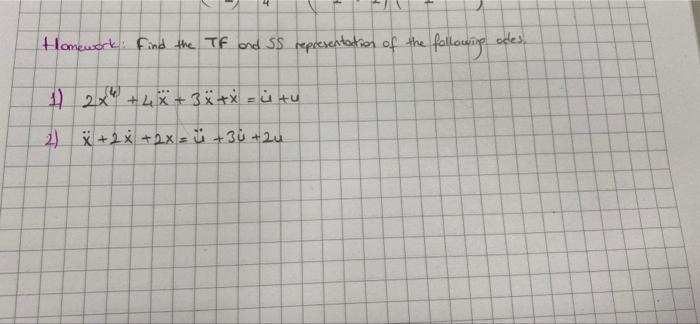 Homework: Find the TF and SS representation of the following odes.
1) 2x⁽⁴⁾ + 4x⃛ + 3ẍ + ẋ = u̇ + u
2) ẍ + 2ẋ + 2x = ü + 3u̇ + 2u